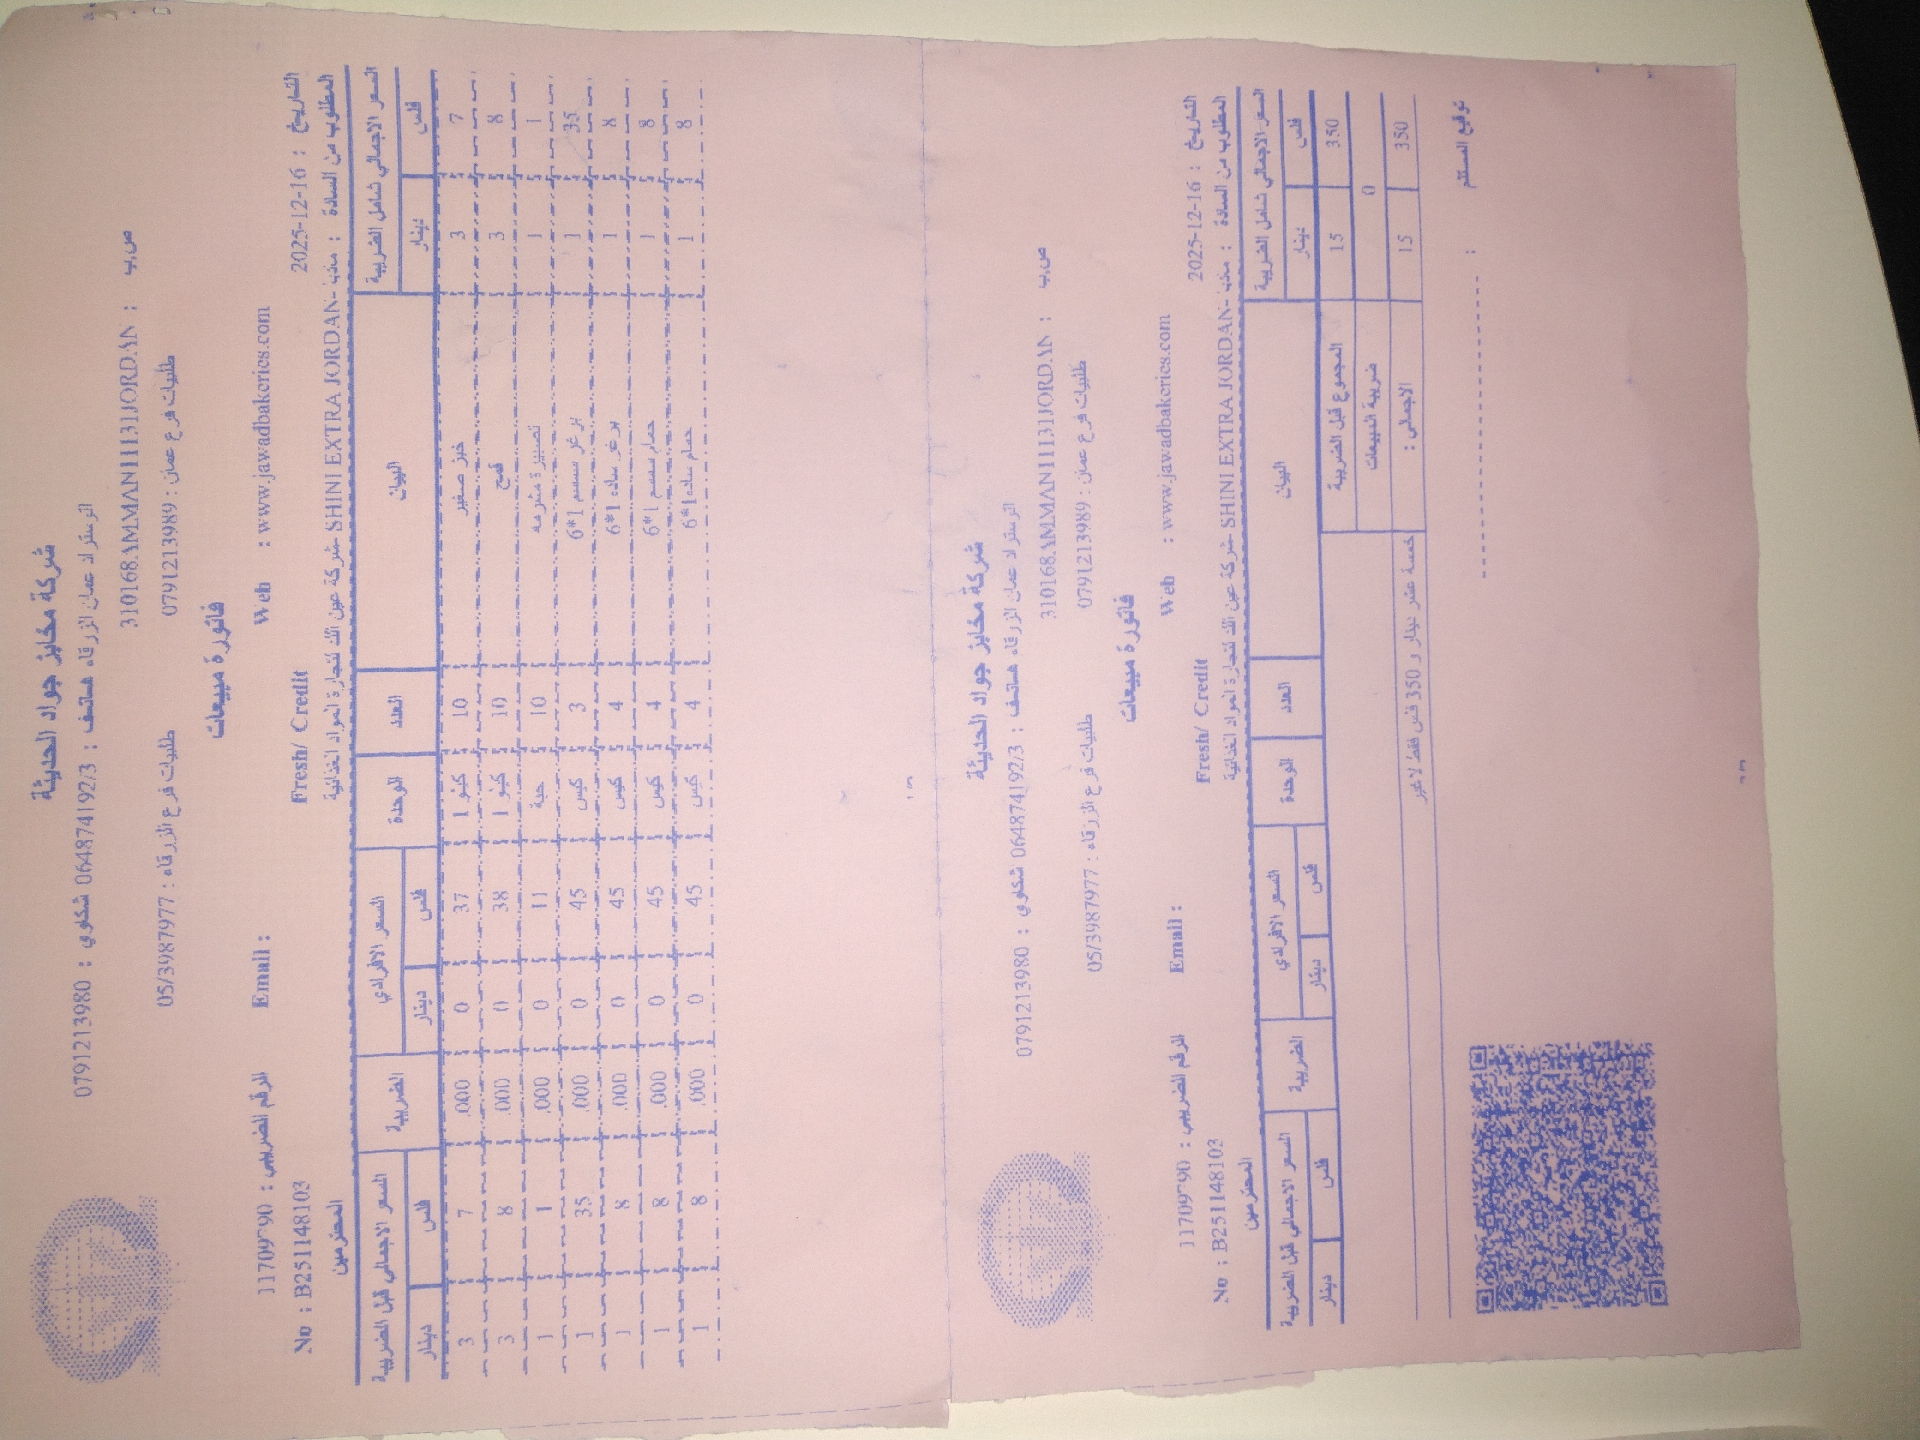 شركة مخابز جواد الحديثة
الرستراد عمان الزرقاء هاتف : 064874192/3 شكاوي : 0791213980
ص.ب : 310168AMMAN11131JORDAN
طلبيات فرع عمان : 0791213989 طلبيات فرع الزرقاء : 05/3987977
فاتورة مبيعات
الرقم الضريبي : Email : Web : www.jawadbakeries.com
التاريخ : 2025-12-16 Fresh/ Credit No : B251148103
المطلوب من السادة : SHINI EXTRA JORDAN- شركة عين الك لتجارة المواد الغذائية المحترمين
السعر الاجمالي شامل الضريبة البيان العدد الوحدة السعر الافرادي الضريبة السعر الاجمالي قبل الضريبة
فلس دينار فلس دينار فلس دينار
7 3 خبز صغير 10 كيلو 1 37 0 .000 7 3
8 3 قمح 10 كيلو 1 38 0 .000 8 3
1 1 10 حبة 11 0 .000 1 1
35 1 برغر سمسم 1*6 3 كيس 45 0 .000 35 1
8 1 برغر ساده 1*6 4 كيس 45 0 .000 8 1
8 1 حمام سمسم 1*6 4 كيس 45 0 .000 8 1
8 1 حمام ساده 1*6 4 كيس 45 0 .000 8 1
شركة مخابز جواد الحديثة
الرستراد عمان الزرقاء هاتف : 064874192/3 شكاوي : 0791213980
ص.ب : 310168AMMAN11131JORDAN
طلبيات فرع عمان : 0791213989 طلبيات فرع الزرقاء : 05/3987977
فاتورة مبيعات
الرقم الضريبي : Email : Web : www.jawadbakeries.com
التاريخ : 2025-12-16 Fresh/ Credit No : B251148103
المطلوب من السادة : SHINI EXTRA JORDAN- شركة عين الك لتجارة المواد الغذائية المحترمين
السعر الاجمالي شامل الضريبة البيان العدد الوحدة السعر الافرادي الضريبة السعر الاجمالي قبل الضريبة
فلس دينار فلس دينار فلس دينار
350 15 المجموع قبل الضريبة
0 ضريبة المبيعات
350 15 الاجمالي :
خمسة عشر دينار و 350 فلس فقط لا غير
توقيع المستلم :